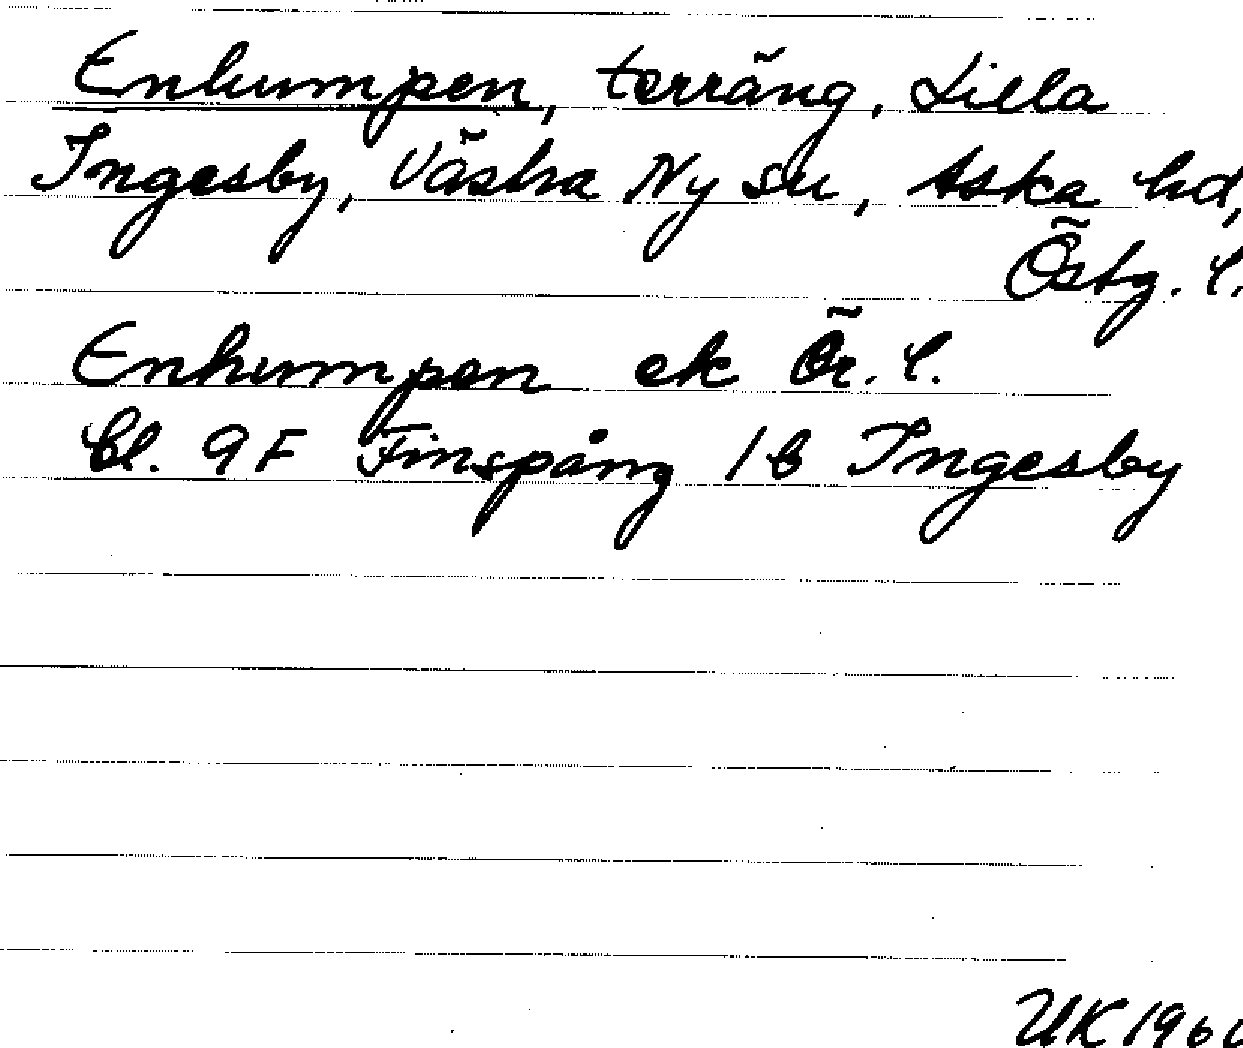 Enhumpen, terräng, Lilla
Ingesby, Västra Ny sn, Aska hd,
Östg. l.
Enhumpen ek Ör. l.
bl. 9F Finspång 1b Ingesby
UK 196